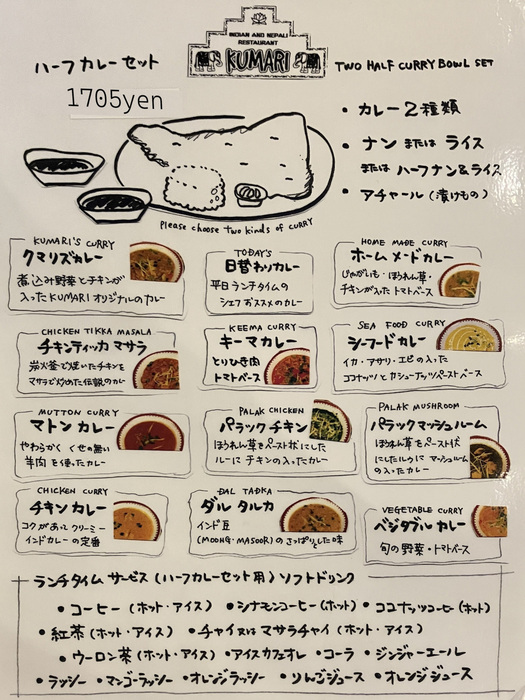 INDIAN AND NEPALI
RESTAURANT
KUMARI
ハーフカレーセット
TWO HALF CURRY BOWL SET
1705yen
・カレー2種類
・ナン または ライス
または ハーフナン&ライス
・アチャール(漬けもの)
Please choose two kinds of CURRY
KUMARI'S CURRY
クマリズカレー
煮込み野菜とチキンが
入ったKUMARIオリジナルのカレー
TODAY'S
日替わりカレー
平日ランチタイムの
シェフおススメのカレー
HOME MADE CURRY
ホームメードカレー
じゃがいも・ほうれん草・
チキンが入ったトマトベース
CHICKEN TIKKA MASALA
チキンティッカマサラ
炭火釜で焼いたチキンを
マサラで炒めた伝説のカレー
KEEMA CURRY
キーマカレー
とりひき肉
トマトベース
SEA FOOD CURRY
シーフードカレー
イカ・アサリ・エビの入った
ココナッツとカシューナッツペーストベース
MUTTON CURRY
マトンカレー
やわらかく くせの無い
羊肉を使ったカレー
PALAK CHICKEN
パラックチキン
ほうれん草をペースト状にした
ルーにチキンの入ったカレー
PALAK MUSHROOM
パラックマッシュルーム
ほうれん草をペースト状
にしたルウにマッシュルーム
の入ったカレー
CHICKEN CURRY
チキンカレー
コクがあってクリーミー
インドカレーの定番
DAL TADKA
ダルタルカ
インド豆
(MOONG・MASOOR)のさっぱりとした味
VEGETABLE CURRY
ベジタブルカレー
旬の野菜・トマトベース
ランチタイムサービス(ハーフカレーセット用)ソフトドリンク
・コーヒー(ホット・アイス) ・シナモンコーヒー(ホット) ・ココナッツコーヒー(ホット)
・紅茶(ホット・アイス) ・チャイ又はマサラチャイ(ホット・アイス)
・ウーロン茶(ホット・アイス) ・アイスカフェオレ ・コーラ ・ジンジャーエール
・ラッシー ・マンゴーラッシー ・オレンジラッシー ・りんごジュース ・オレンジジュース